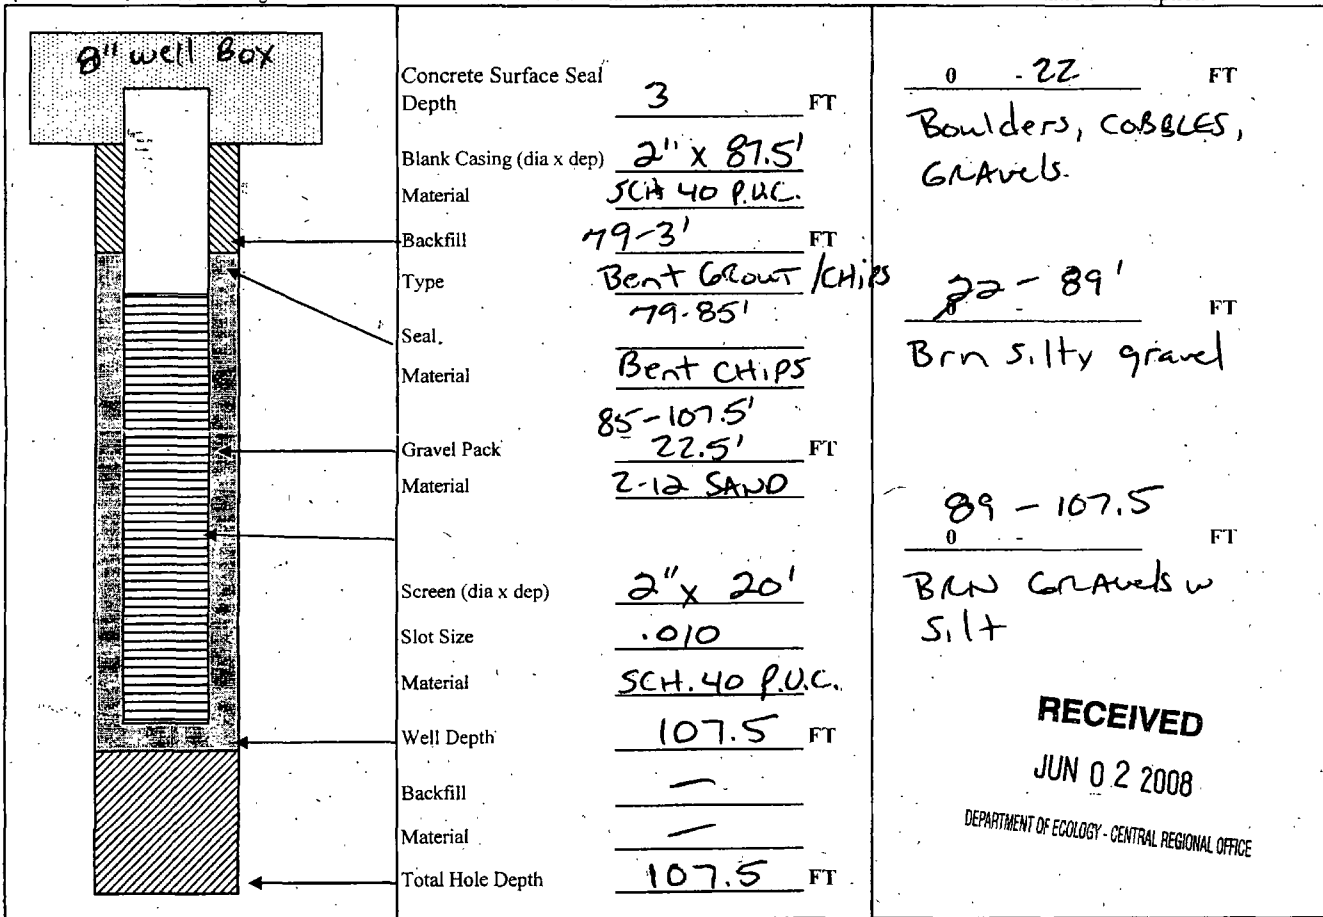 8" well Box
Concrete Surface Seal
Depth 3 FT
Blank Casing (dia x dep) 2" x 87.5'
Material SCH 40 P.V.C.
Backfill 79-3' FT
Type Bent GROUT /CHIPS
79-85'
Seal
Material Bent CHIPS
85-107.5'
Gravel Pack 22.5' FT
Material 2-12 SAND
Screen (dia x dep) 2" x 20'
Slot Size .010
Material SCH. 40 P.V.C.
Well Depth 107.5 FT
Backfill —
Material —
Total Hole Depth 107.5 FT
0 - 22 FT
Boulders, COBBLES,
GRAvels.
22 - 89'
0 - FT
Brn silty gravel
89 - 107.5
0 - FT
BRN GRAvels w
silt
RECEIVED
JUN 02 2008
DEPARTMENT OF ECOLOGY - CENTRAL REGIONAL OFFICE